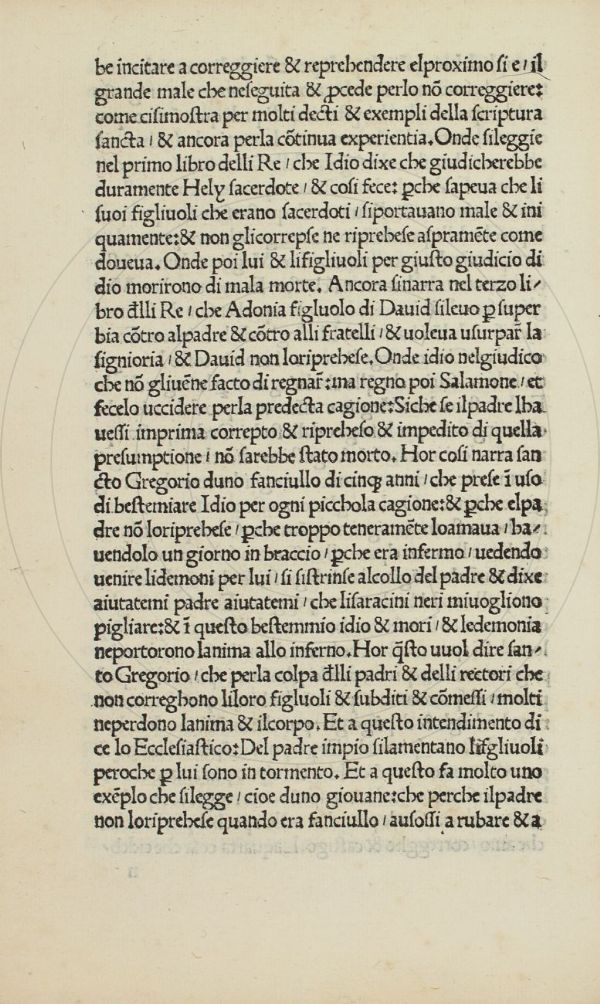 be incitare a correggiere & reprehendere elproximo si e / il
grande male che neseguita & ꝓcede perlo nō correggiere:
come cisimostra per molti decti & exempli della scriptura
sancta / & ancora perla cōtinua experientia. Onde sileggie
nel primo libro delli Re / che Idio dixe che giudicherebbe
duramente Hely sacerdote / & cosi fece: ꝑche sapeua che li
suoi figliuoli che erano sacerdoti / siportauano male & ini
quamente: & non glicorrepse ne riprehese aspramēte come
doueua. Onde poi lui & lifigliuoli per giusto giudicio di
dio morirono di mala morte. Ancora sinarra nel terzo li/
bro đlli Re / che Adonia figluolo di Dauid sileuo ꝑ super
bia cōtro alpadre & cōtro alli fratelli / & uoleua usurpar̄ la
signioria / & Dauid non loriprehese. Onde idio nelgiudico
che nō gliuēne facto di regnar̄: ma regno poi Salamone / et
fecelo uccidere perla predecta cagione: Siche se ilpadre lha
uessi imprima correpto & riprheso & impedito di quella
presumptione / nō sarebbe stato morto. Hor cosi narra san
cto Gregorio duno fanciullo di cinqꝫ anni / che prese ī uso
di bestemiare Idio per ogni picchola cagione: & ꝑche elpa
dre nō loriprehese / ꝑche troppo teneramēte loamaua / ha/
uendolo un giorno in braccio / ꝑche era infermo / uedendo
uenire lidemoni per lui / si sistrinse alcollo del padre & dixe
aiutatemi padre aiutatemi / che lisaracini neri miuogliono
pigliare: & ī questo bestemmio idio & mori / & ledemonia
neportorono lanima allo inferno. Hor q̄sto uuol dire san/
to Gregorio / che perla colpa đlli padri & delli rectori che
non correghono liloro figluoli & subditi & cōmessi / molti
neperdono lanima & ilcorpo. Et a questo intendimento di
ce lo Ecclesiastico: Del padre impio silamentano lifigliuoli
peroche ꝑ lui sono in tormento. Et a questo fa molto uno
exēplo che silegge / cioe duno giouane: che perche ilpadre
non loriprehese quando era fanciullo / ausossi a rubare & a